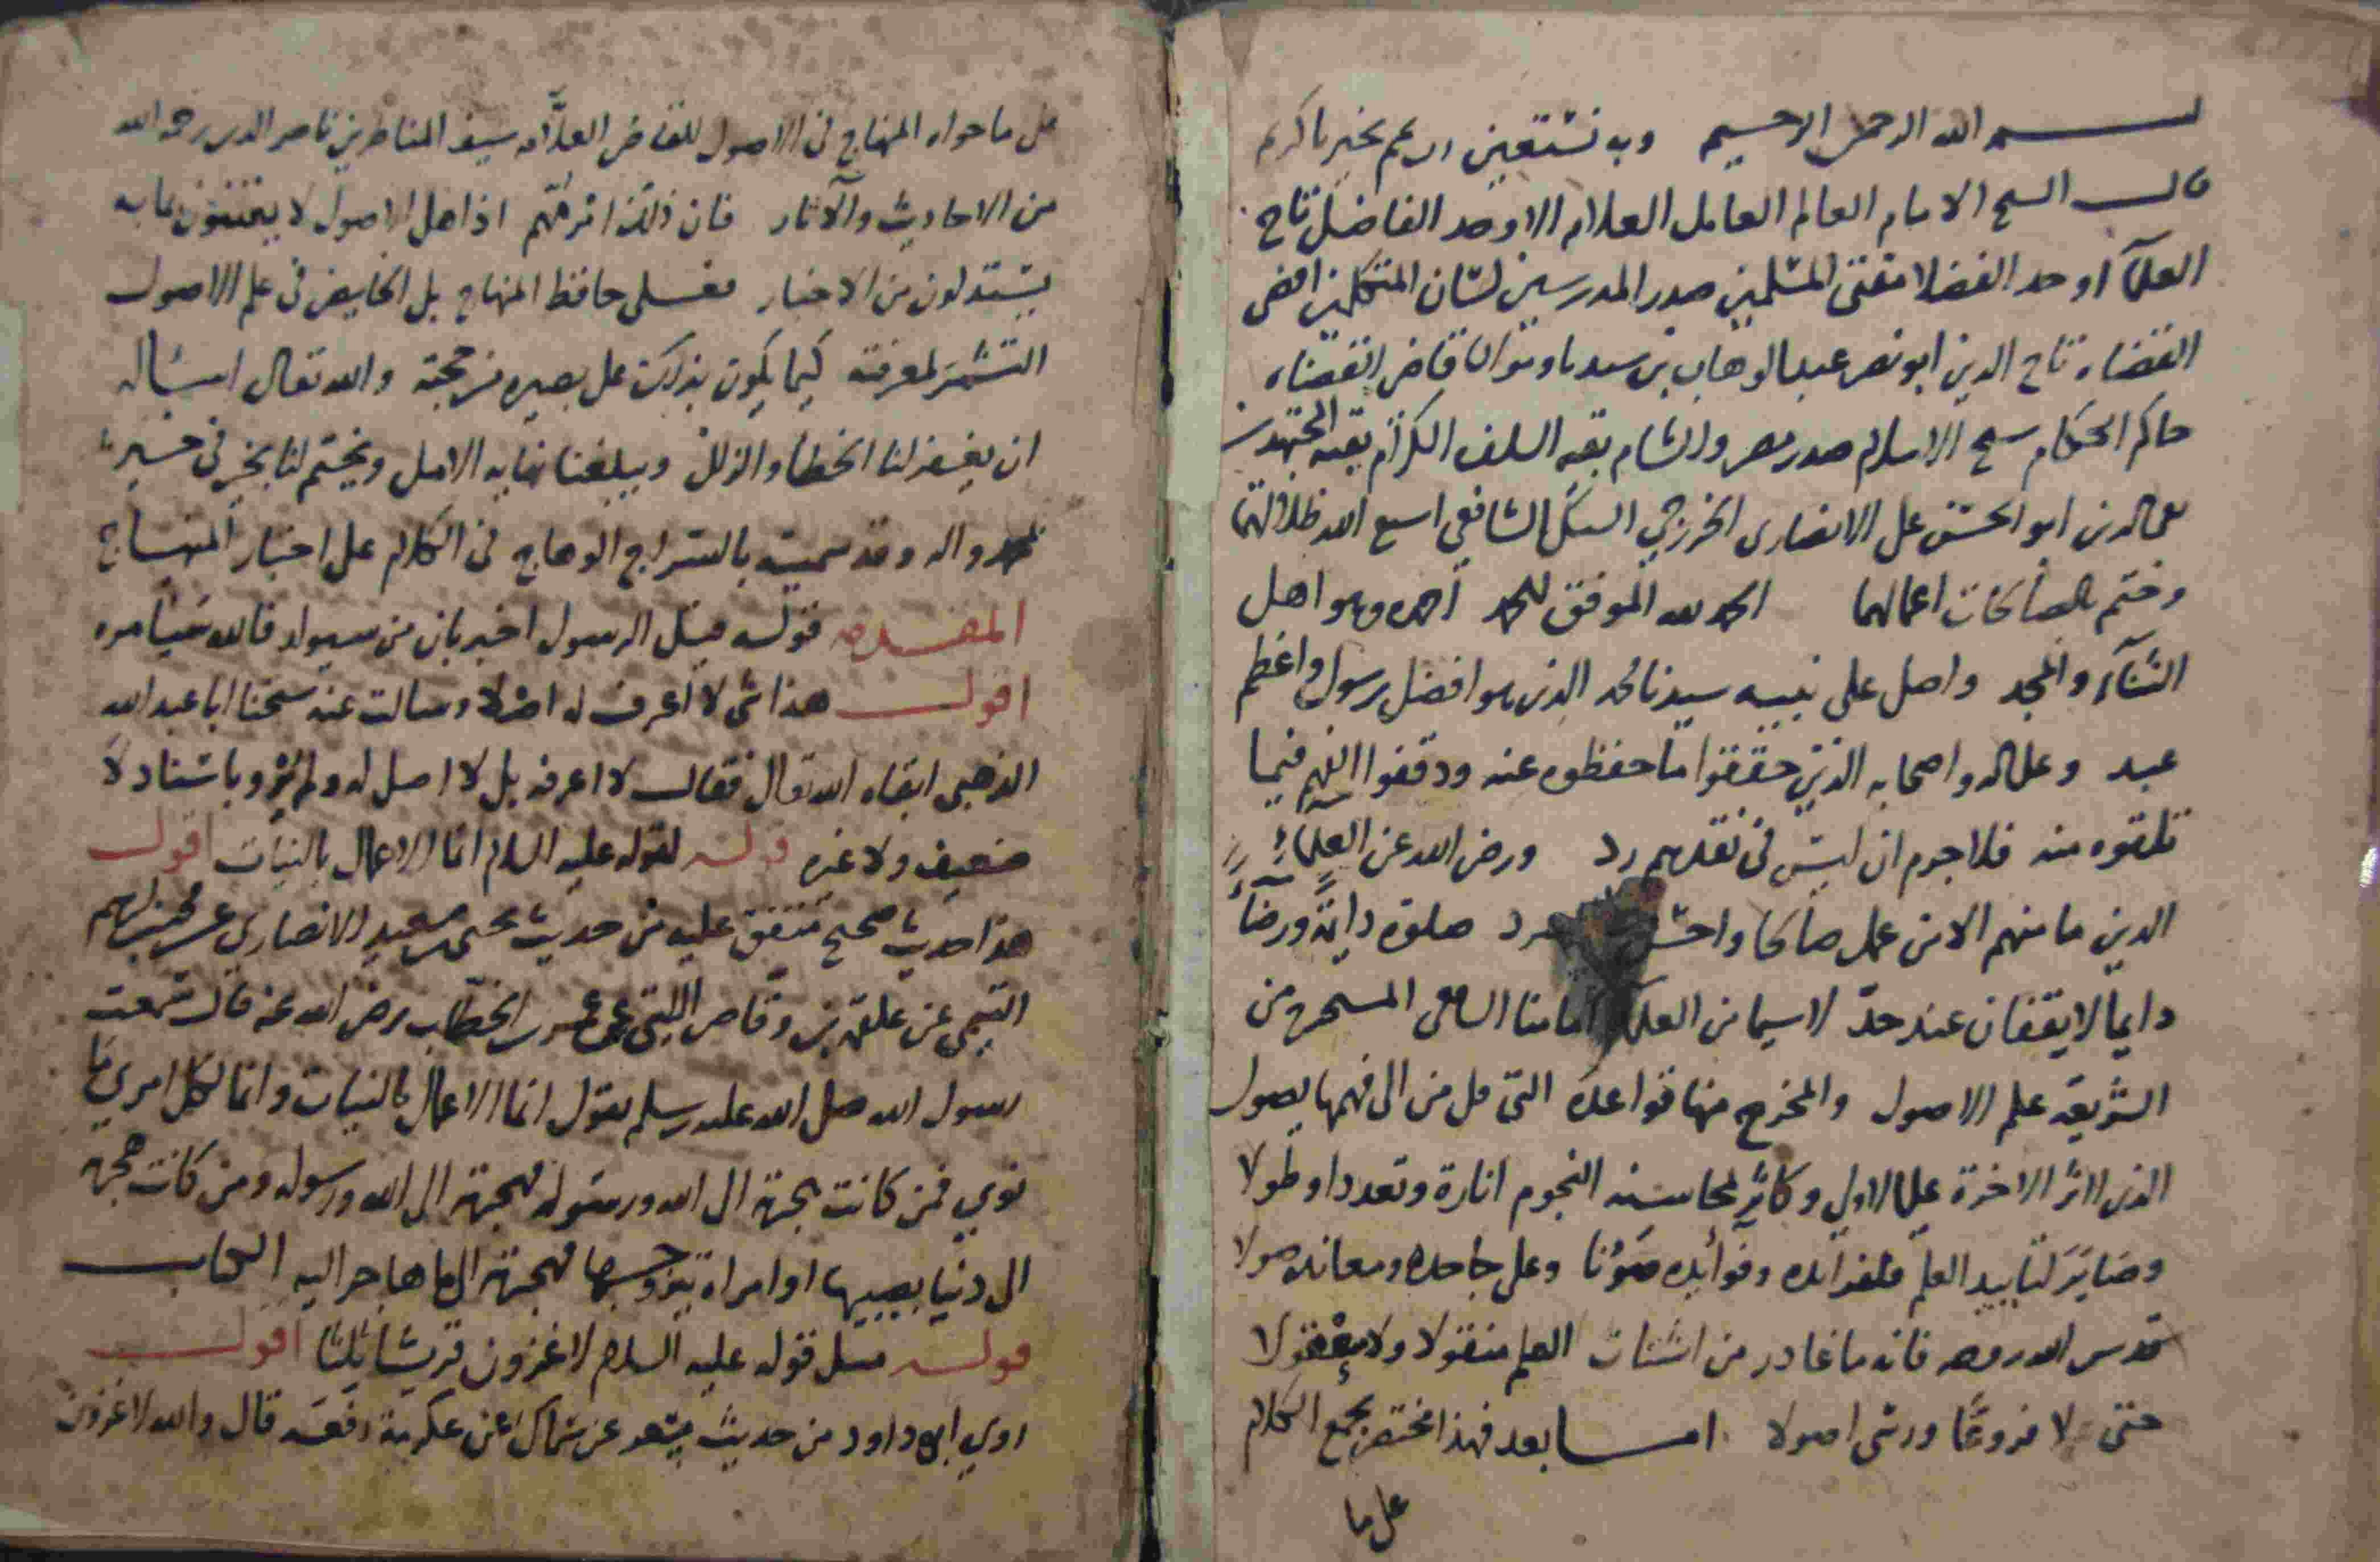 بسم الله الرحمن الرحيم وبه نستعين رب عم بخير يا كريم
قال الشيخ الامام العالم العامل العلامه الاوحد الفاضل تاج
العلمآ اوحد الفضلا مفتي المسلمين صدر المدرسين لسان المتكلمين اقضى
القضاه تاج الدين ابو نصر عبد الوهاب بن سيدنا ومولانا قاضي القضاه
حاكم الحكام شيخ الاسلام صدر مصر والشام بقيه السلف الكرام بقيه المجتهدين
تقي الدين ابو الحسن علي الانصاري الخزرجي السبكي الشافعي اسبغ الله ظلالهما
وختم بالصالحات اعمالهما الحمد لله الموفق للحمد احمده وهو اهل
الثنآء والمجد واصلي على نبيه سيدنا محمد الذي هو افضل رسول واعظم
عبد وعلى اله واصحابه الذين حققوا ما حفظوه عنه ودققوا الفهم فيما
تلقوه منه فلا جرم ان ليس في نقلهم رد ورضي الله عن العلمآء
الذين ما منهم الا من عمل صالحا صلوة دايمة ورضآء
دايما لا يقفان عند حد لا سيما من العلمآ امامنا الشافعي المستخرج من
الشريعة علم الاصول والمخرج منها قواعده التي كل من الى فهمها يصول
الذي اثر الاخرة على الاولى وكاثر بمحاسنه النجوم انارة وتعددا وطولا
لتاييد العلم وفوائده صونا وعلى جاحده ومعانده صولا
قدس الله روحه فانه ما غادر من اشتات العلم منقولا ولا معقولا
حتى لا فروعًا ورسى اصولا امـا بعد فهذا مختصر يجمع الكلام
على ما
على ما حواه المنهاج في الاصول للقاضي العلامه سيف المناظرين ناصر الدين رحمه الله
من الاحاديث والآثار فان ذلك امر مهم اذ اهل الاصول لا يعتنون بما به
يستدلون من الاخبار فعلى حافظ المنهاج بل الخايض في علم الاصول
التشمر لمعرفته كيما يكون بذلك على بصيره من حجته والله تعالى اسـأله
ان يغفر لنا الخطا والزلل ويبلغنا نهايه الامل ويختم لنا بخير في خير
بمحمد واله وقد سميته بالسراج الوهاج في الكلام على اخبار المنهـاج
المقدمه قوله قبل الرسول اخبر بان من سيولد فالله سيامره
اقول هذا شي لا اعرف له اصلا وسالت عنه شيخنا ابا عبد الله
الذهبي ابقاه الله تعالى فقال لا اعرفه بل لا اصل له ولم يرو باسناد لا
ضعيف ولا غيره قوله لقوله عليه السلام انما الاعمال بالنيات اقول
هذا حديث صحيح متفق عليه من حديث يحيى بن سعيد الانصاري عن محمد بن ابراهيم
التيمي عن علقمه بن وقاص الليثي عن عمر بن الخطاب رضي الله عنه قال سمعت
رسول الله صلى الله عليه وسلم يقول انما الاعمال بالنيات وانما لكل امري ما
نوي فمن كانت هجرته الى الله ورسوله فهجرته الى الله ورسوله ومن كانت هجرته
الى دنيا يصيبها او امراه يتزوجها فهجرته الى ما هاجر اليه
قوله مثل قوله عليه السلام لاغزون قريشا ثلثا اقول
روي ابو داود من حديث مسعر عن سماك عن عكرمة رفعه قال والله لاغزون